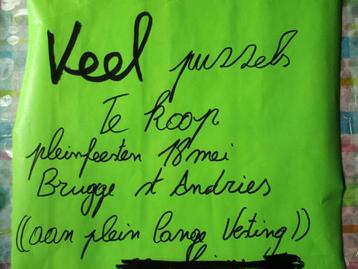 Veel puzzels
Te koop
pleinfeesten 18 mei
Brugge st Andries
((aan plein Lange Vesting))